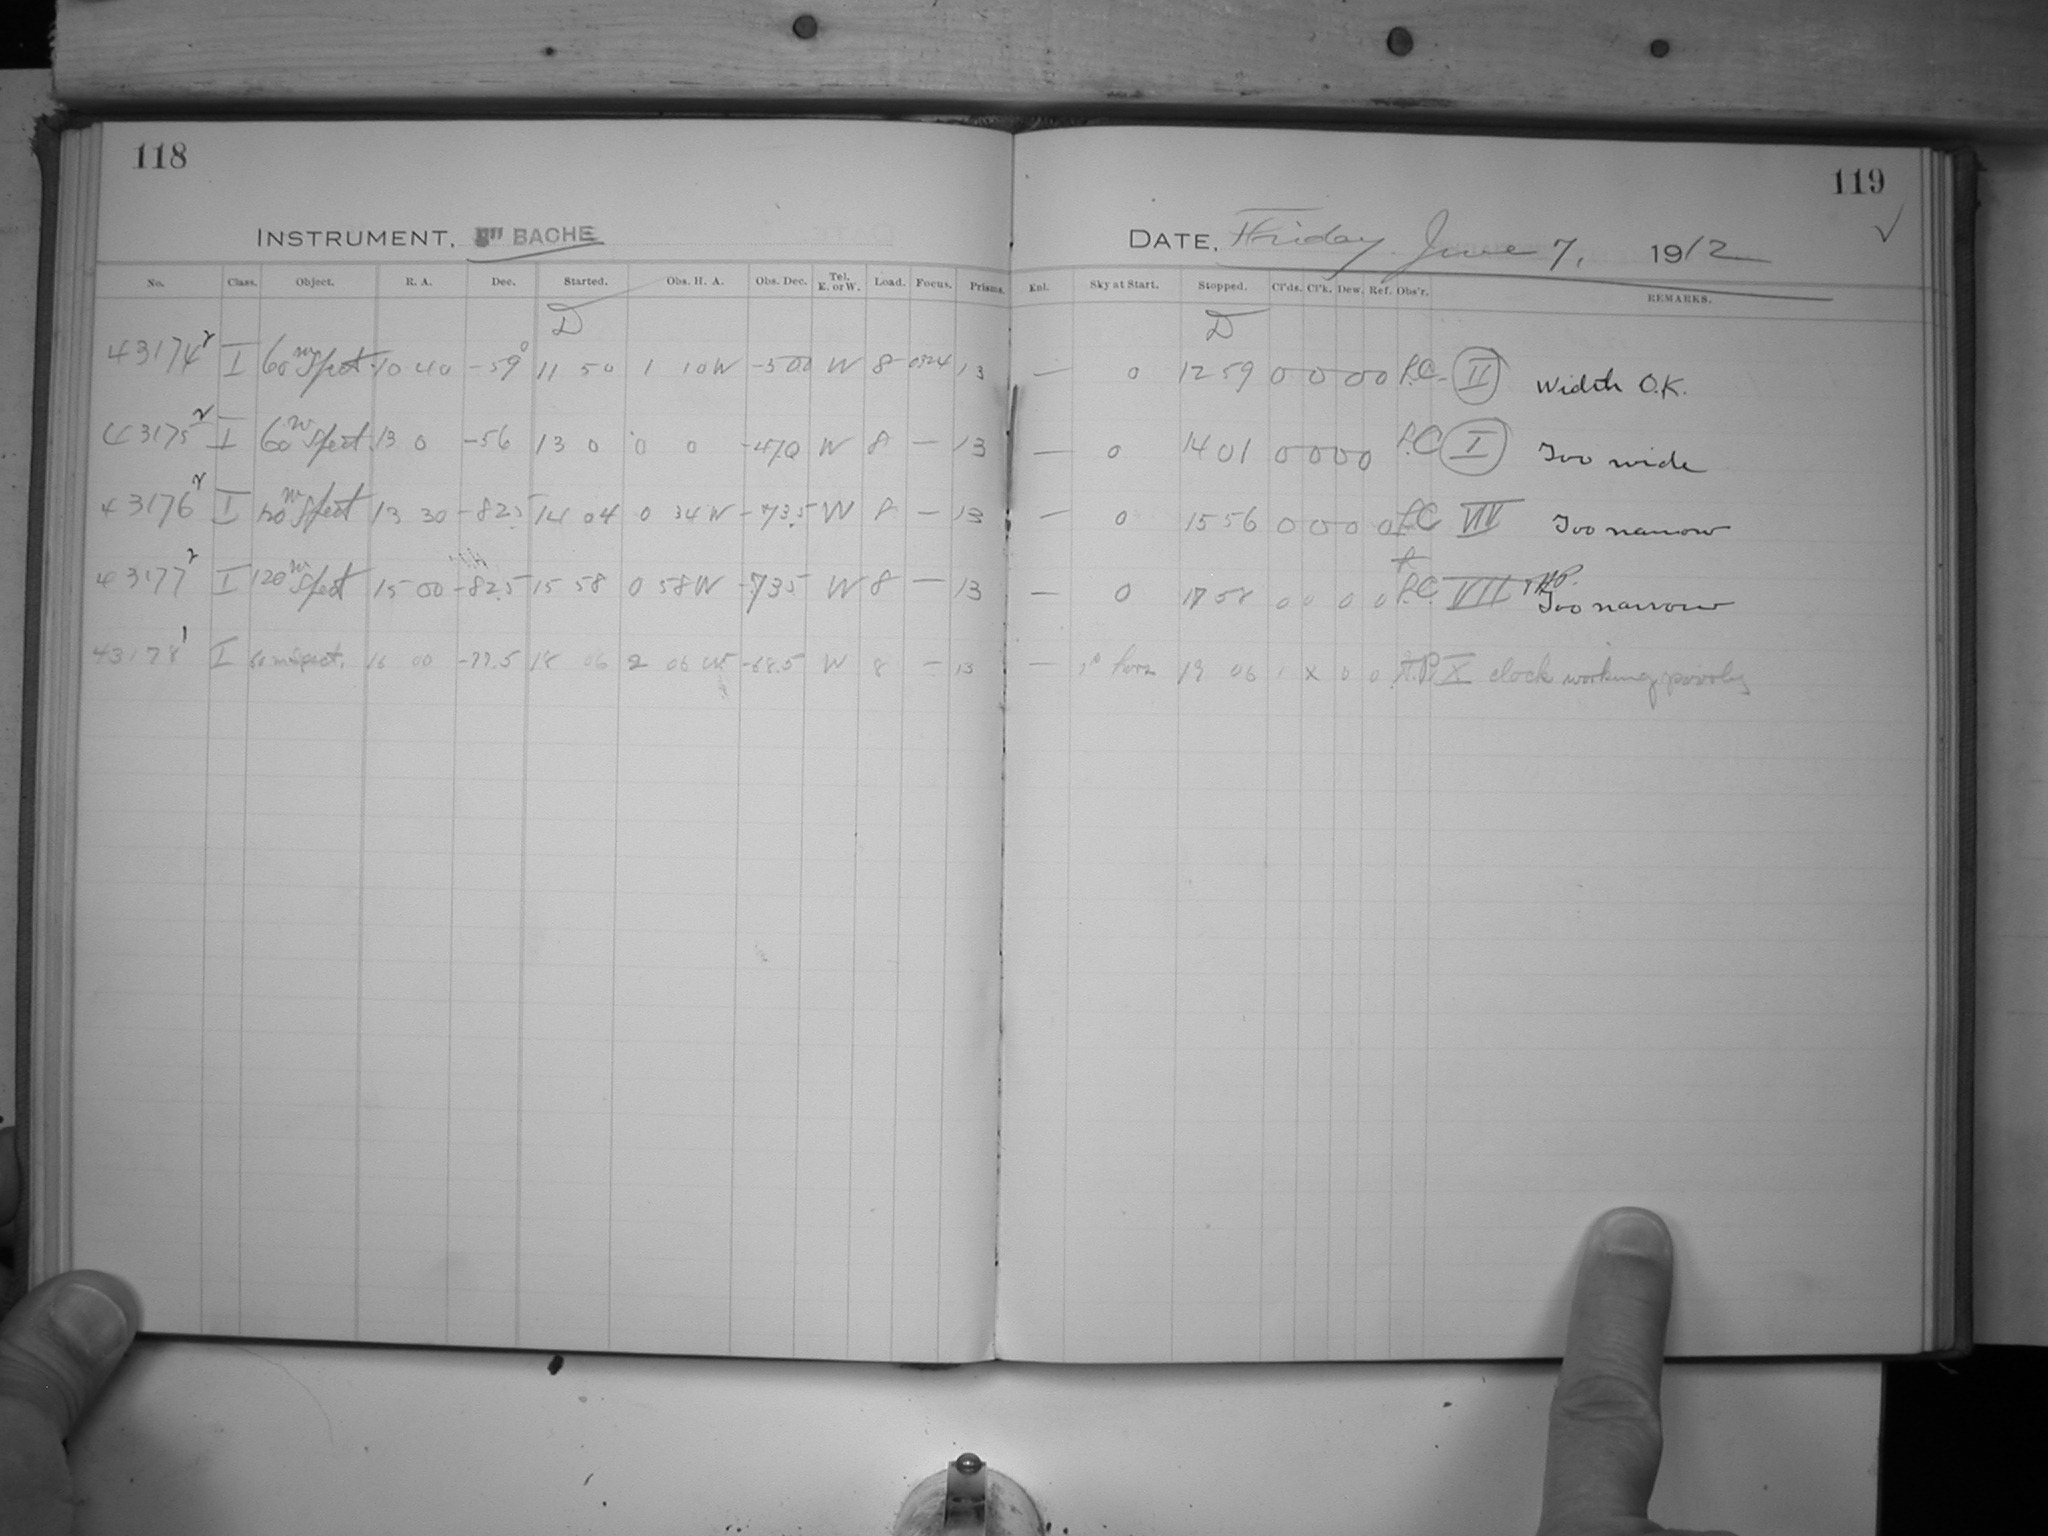 118
119
INSTRUMENT, 8" BACHE
DATE, Friday June 7, 1912
No. Class. Object. R. A. Dec. Started. Obs. H. A. Obs. Dec. Tel. E. or W. Load. Focus. Prisms.
Enl. Sky at Start. Stopped. Cl'ds. Cl'k. Dew. Ref. Obs'r. REMARKS.
D D
43174 2 I 60 m Spect. 10 40 -59° 11 50 1 10 W -500 W 8 0524 13 — 0 12 59 0 0 0 0 L.C. II Width O.K.
43175 2 I 60 m Spect. 13 0 -56 13 0 0 0 -470 W 8 — 13 — 0 14 01 0 0 0 0 L.C. I Too wide
43176 2 I 120 m Spect 13 30 -82.5 14 04 0 34 W -73.5 W 8 — 13 — 0 15 56 0 0 0 0 L.C. VII Too narrow
43177 2 I 120 m Spect 15 00 -82.5 15 58 0 58 W -735 W 8 — 13 — 0 17 58 0 0 0 0 L.C. VII Too narrow
43178 1 I 60 m Spect. 16 00 -77.5 18 06 2 06 W -68.5 W 8 — 13 — 19 06 1 X 0 0 X clock working poorly